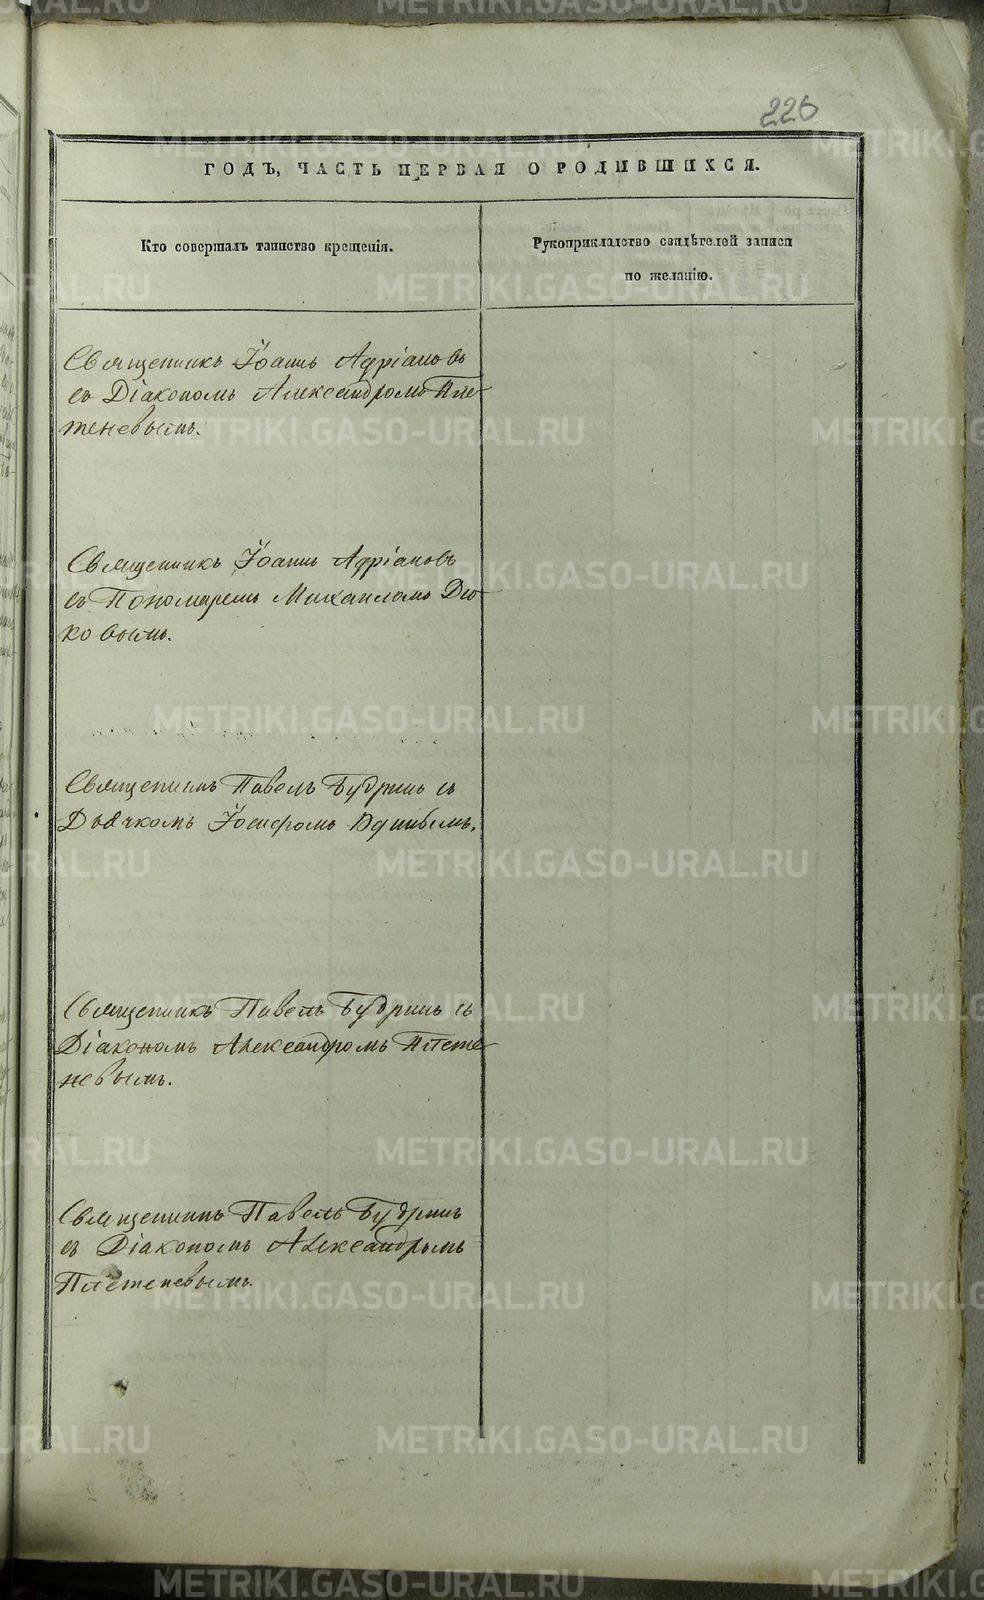 226
ГОДЪ, ЧАСТЬ ПЕРВАЯ О РОДИВШИХСЯ.
Кто совершалъ таинство крещенія.
Рукоприкладство свидѣтелей записи
по желанію.
Священникъ Іоаннъ Адріановъ
съ Діакономъ Александромъ Пле-
теневымъ.
Священникъ Іоаннъ Адріановъ
съ Пономаремъ Михаиломъ Дю-
ковымъ.
Священникъ Павелъ Будринъ съ
Дьячкомъ Іосифомъ
Священникъ Павелъ Будринъ съ
Діакономъ Александромъ Плете-
невымъ.
Священникъ Павелъ Будринъ
съ Діакономъ Александромъ
Плетеневымъ.
METRIKI.GASO-URAL.RU